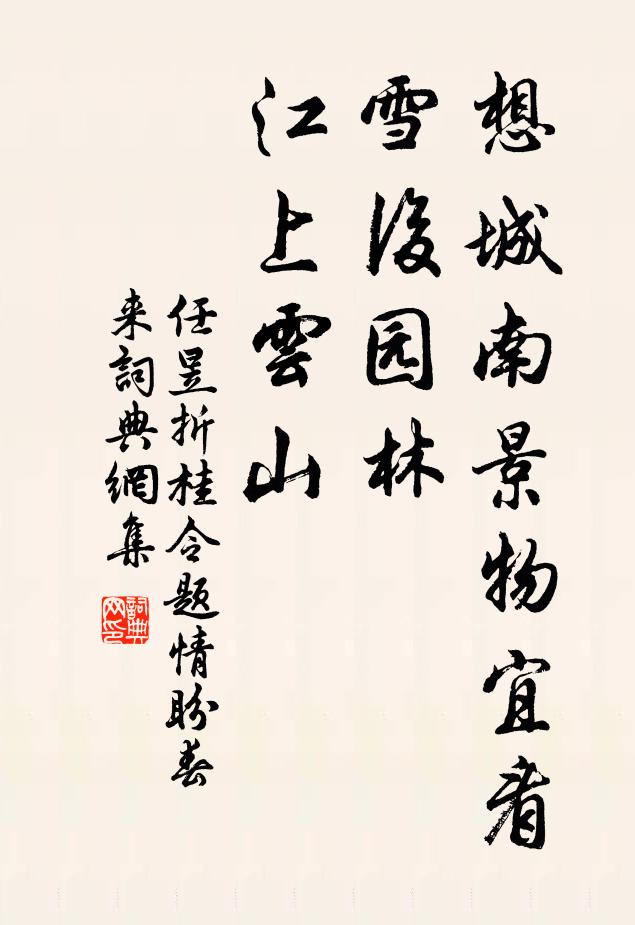 想城南景物宜看
雪後园林
江上雲山
任昱折桂令题情盼春
来詞典網集
詞典
网印